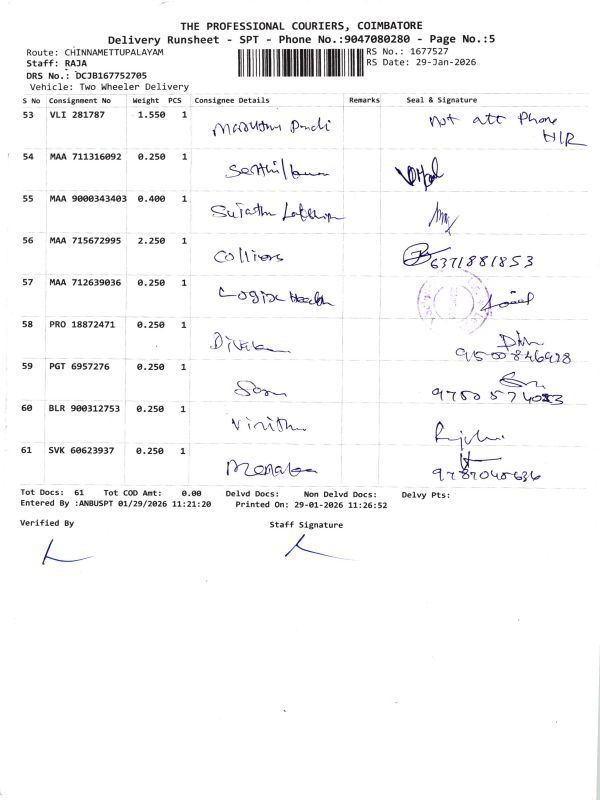 THE PROFESSIONAL COURIERS, COIMBATORE
Delivery Runsheet - SPT - Phone No.:9047080280 - Page No.:5
Route: CHINNAMETTUPALAYAM RS No.: 1677527
Staff: RAJA RS Date: 29-Jan-2026
DRS No.: DCJB167752705
Vehicle: Two Wheeler Delivery
S No Consignment No Weight PCS Consignee Details Remarks Seal & Signature
53 VLI 281787 1.550 1 Not att Phone
H/R
54 MAA 711316092 0.250 1
55 MAA 9000343403 0.400 1 Sujatha
56 MAA 715672995 2.250 1 Colliers 6371881853
57 MAA 712639036 0.250 1 Logix Health
58 PRO 18872471 0.250 1
59 PGT 6957276 0.250 1
60 BLR 900312753 0.250 1
61 SVK 60623937 0.250 1
Tot Docs: 61 Tot COD Amt: 0.00 Delvd Docs: Non Delvd Docs: Delvy Pts:
Entered By :ANBUSPT 01/29/2026 11:21:20 Printed On: 29-01-2026 11:26:52
Verified By Staff Signature